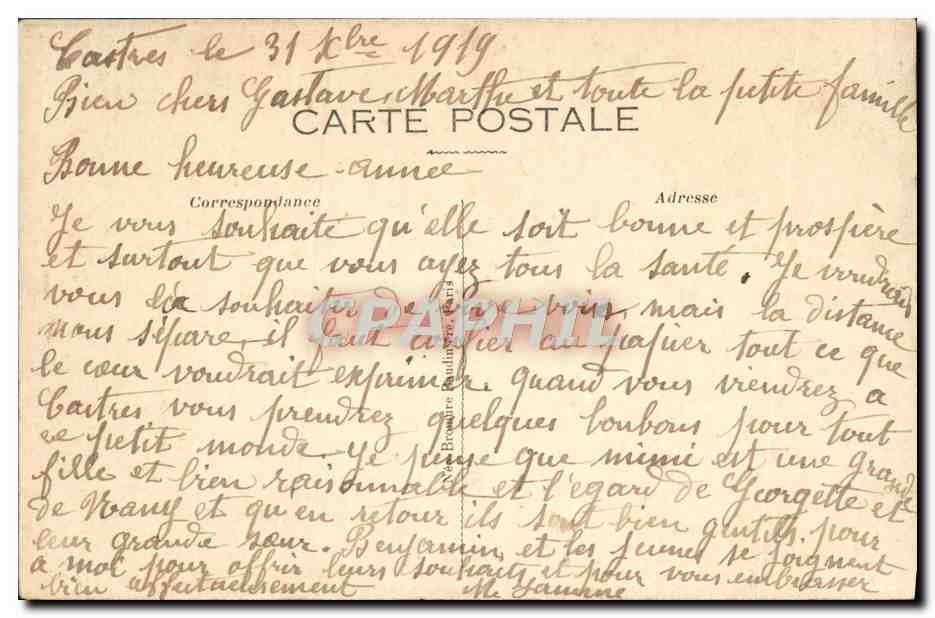 Castres le 31 Xbre 1919
Bien chers Gastave, Marthe et toute la petite famille
CARTE POSTALE
Bonne heureuse année
Correspondance
Adresse
Je vous souhaite qu'elle soit bonne et prospère
et surtout que vous ayez tous la santé. Je voudrais
vous la souhaiter de vive voix, mais la distance
nous sépare, il faut confier au papier tout ce que
le cœur voudrait exprimer. quand vous viendrez a
Castres vous prendrez quelques bonbons pour tout
ce petit monde. Je pense que mimi est une grande
fille et bien raisonnable et l'egard de Georgette et
de Nany et qu'en retour ils sont bien gentils pour
leur grande sœur. Benjamin et les jeunes se joignent
a moi pour offrir leurs souhaits et pour vous embrasser
bien affectueusement
CPAPHIL
Paris